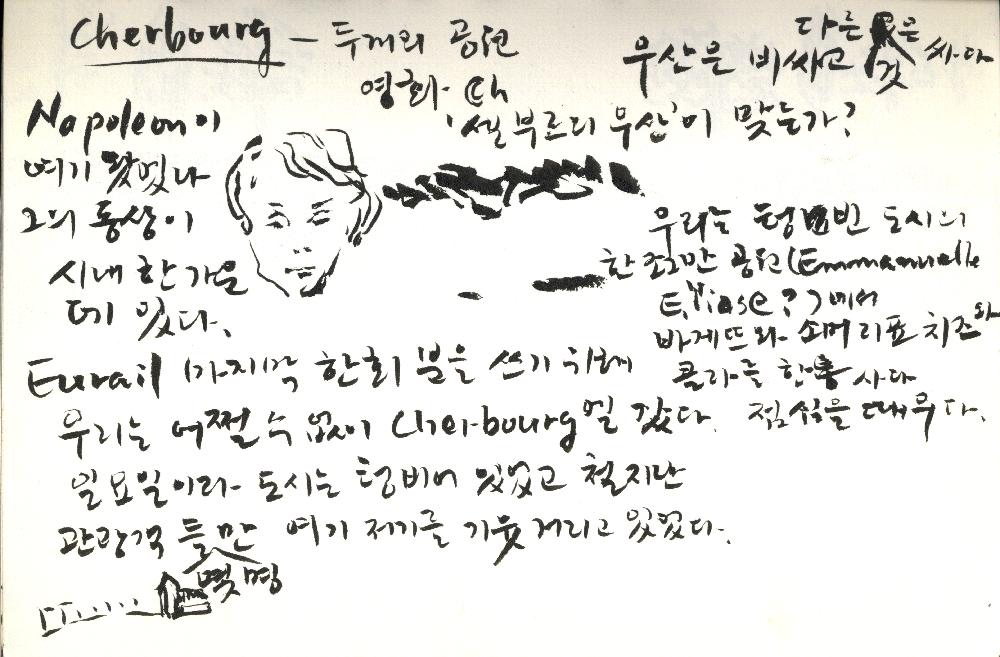 Cherbourg – 두개의 공원
영화. Ch
'셸부르의 우산'이 맞는가?
우산은 비싸고 다른 것은 싸다
Napoleon이
여기 왔었다
그의 동상이
시내 한가운
데 있다.
우리는 텅빈 도시의
한 조그만 공원(Emmannuelle
E,liase?)에서
바게뜨와 소머리표 치즈와
콜라를 한통 사다
점심을 때우다.
Eurail 마지막 한회분을 쓰기 위해
우리는 어쩔 수 없이 Cherbourg엘 갔다.
일요일이라 도시는 텅비어 있었고 철지난
관광객들만 여기 저기를 기웃거리고 있었다.
몇명